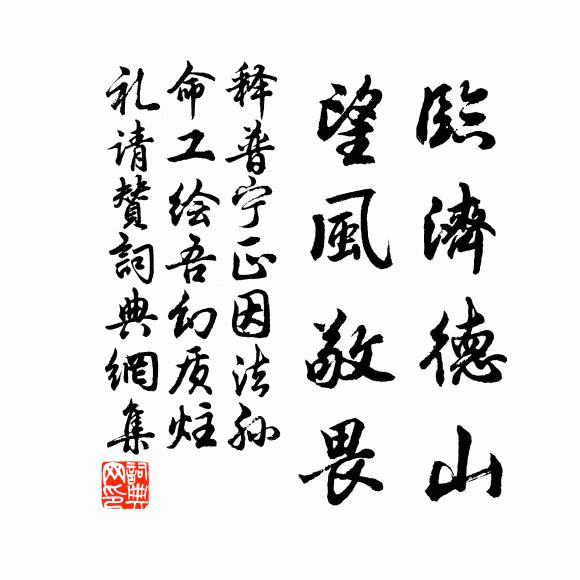 臨濟德山
望風敬畏
释普宁正因法孙
命工绘吾幻质炷
礼请賛詞典網集